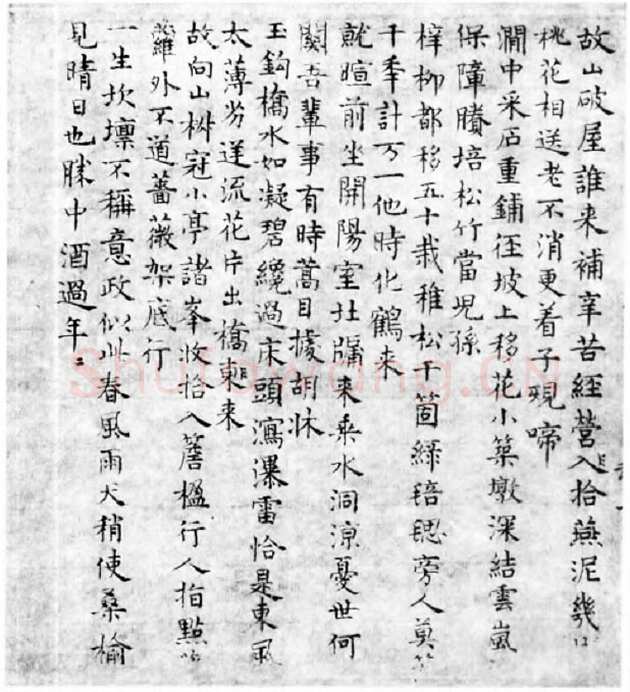 故山破屋誰来補辛苦経營入拾燕泥幾
桃花相送老不消更着子規啼
澗中采石重鋪徑坡上移花小築墩深結雲嵐
保障賸培松竹當児孫
梓柳都移五十栽稚松千箇緑旁人莫笑
千年計万一他時化鶴来
就暄前坐開陽室牖来乘水洞涼憂世何
關吾輩事有時蒿目據胡牀
玉鈎橋水如凝碧纔過床頭瀉瀑雷恰是東風
太薄劣逆流花片出橋東来
故向山樹冠小亭諸峯收拾入簷楹行人指點
蘿外不道薔薇架底行
一生坎壈不稱意政似此春風雨天稍使桑榆
見晴日也勝中酒過年々
Shufawang.CN